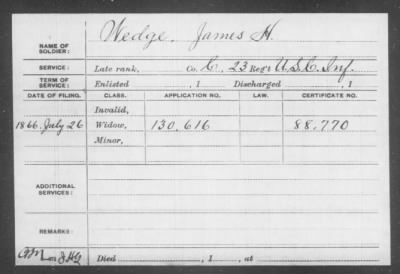 NAME OF SOLDIER: Wedge, James H.
SERVICE: Late rank, Co. C, 23 Reg't U.S.C. Inf.
TERM OF SERVICE: Enlisted , 1 Discharged , 1
DATE OF FILING. CLASS. APPLICATION NO. LAW. CERTIFICATE NO.
Invalid,
1866, July 26 Widow, 130,616 88,770
Minor,
ADDITIONAL SERVICES:
REMARKS:
Died , 1 , at